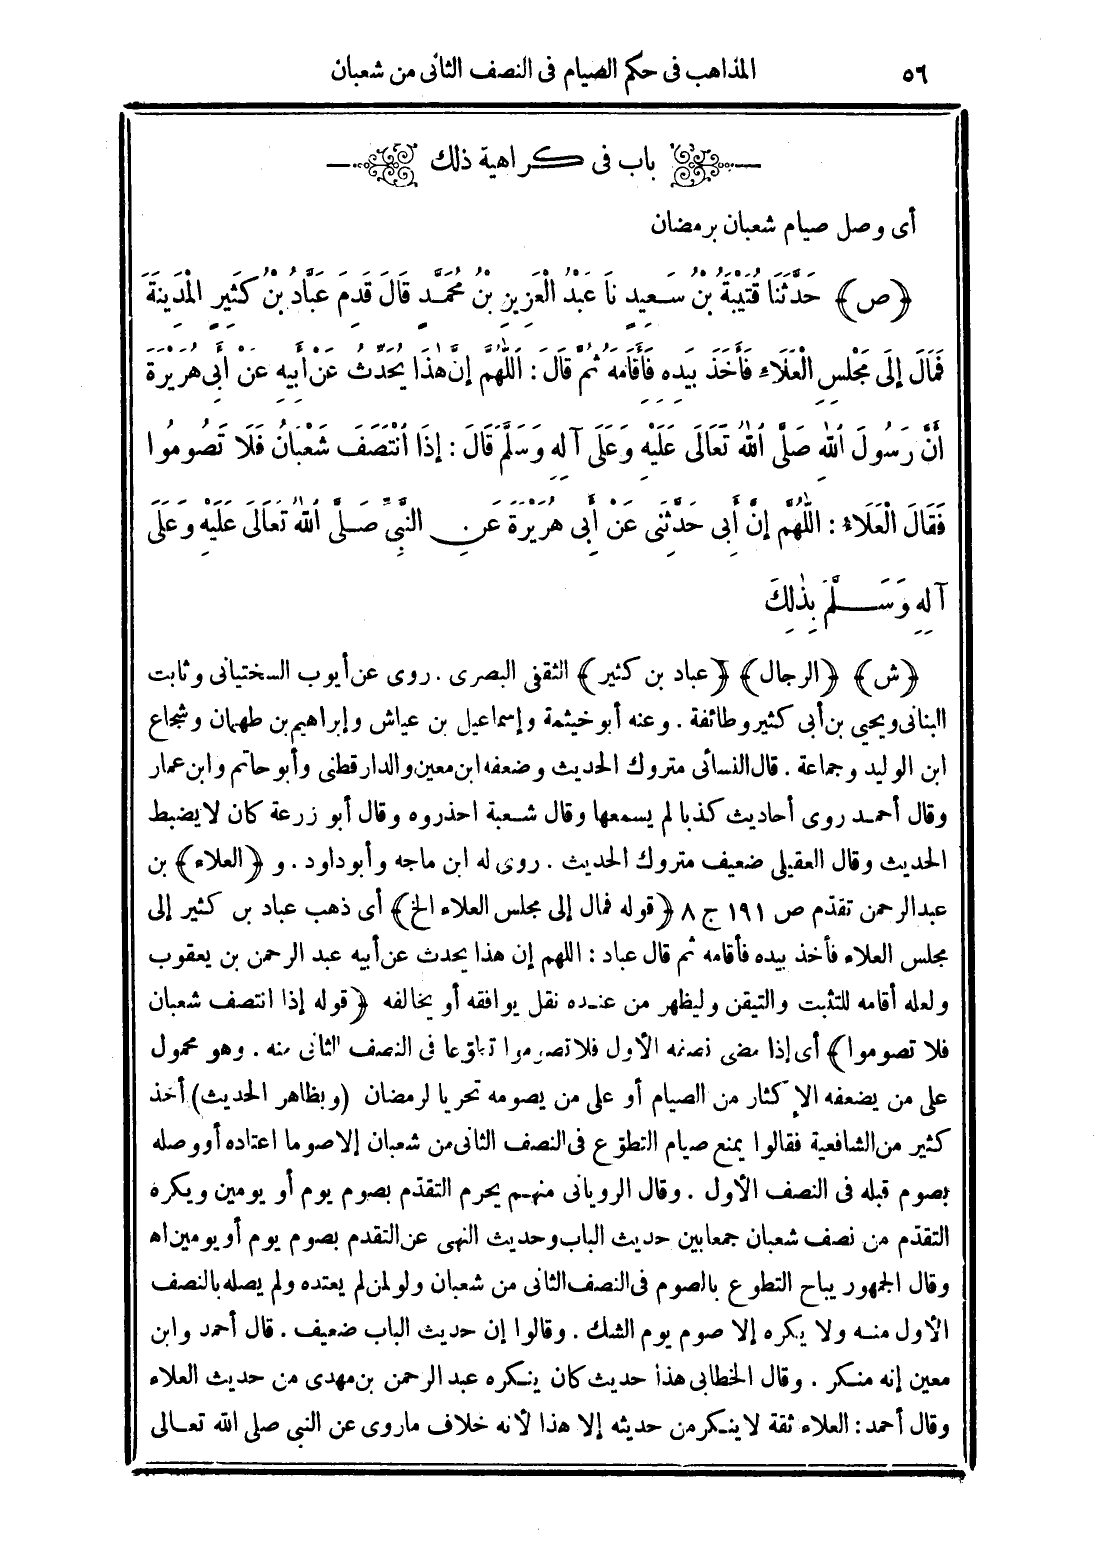 ٥٦ المذاهب فى حكم الصيام فى النصف الثانى من شعبان
باب فى كراهية ذلك
أى وصل صيام شعبان برمضان
﴿ص﴾ حَدَّثَنَا قُتَيْبَةُ بْنُ سَعِيدٍ نَا عَبْدُ الْعَزِيزِ بْنُ مُحَمَّدٍ قَالَ قَدِمَ عَبَّادُ بْنُ كَثِيرٍ الْمَدِينَةَ
فَمَالَ إِلَى مَجْلِسِ الْعَلَاءِ فَأَخَذَ بِيَدِهِ فَأَقَامَهُ ثُمَّ قَالَ : اَللّٰهُمَّ إِنَّ هٰذَا يُحَدِّثُ عَنْ أَبِيهِ عَنْ أَبِي هُرَيْرَةَ
أَنَّ رَسُولَ اللهِ صَلَّى اللهُ تَعَالَى عَلَيْهِ وَعَلَى آلِهِ وَسَلَّمَ قَالَ : إِذَا انْتَصَفَ شَعْبَانُ فَلَا تَصُومُوا
فَقَالَ الْعَلَاءُ : اللّٰهُمَّ إِنَّ أَبِى حَدَّثَنِى عَنْ أَبِى هُرَيْرَةَ عَنِ النَّبِيِّ صَلَّى اللهُ تَعَالَى عَلَيْهِ وَعَلَى
آلِهِ وَسَلَّمَ بِذٰلِكَ
﴿ش﴾ ﴿الرجال﴾ ﴿عباد بن كثير﴾ الثقفى البصرى . روى عن أيوب السختيانى وثابت
البنانى ويحيي بن أبى كثير وطائفة . وعنه أبو خيثمة وإسماعيل بن عياش وإبراهيم بن طهمان وشجاع
ابن الوليد وجماعة . قال النسائى متروك الحديث وضعفه ابن معين والدارقطنى وأبو حاتم وابن عمار
وقال أحمد روى أحاديث كذبا لم يسمعها وقال شعبة احذروه وقال أبو زرعة كان لا يضبط
الحديث وقال العقيلى ضعيف متروك الحديث . روى له ابن ماجه وأبو داود . و ﴿العلاء﴾ بن
عبد الرحمن تقدّم ص ١٩١ ج ٨ ﴿قوله فمال إلى مجلس العلاء الخ﴾ أى ذهب عباد بن كثير إلى
مجلس العلاء فأخذ بيده فأقامه ثم قال عباد : اللهم إن هذا يحدث عن أبيه عبد الرحمن بن يعقوب
ولعله أقامه للتثبت والتيقن وليظهر من عنده نقل يوافقه أو يخالفه ﴿قوله إذا انتصف شعبان
فلا تصوموا﴾ أى إذا مضى نصفه الأول فلا تصوموا تطوّعا فى النصف الثانى منه . وهو محمول
على من يضعفه الإكثار من الصيام أو على من يصومه تحريا لرمضان (وبظاهر الحديث) أخذ
كثير من الشافعية فقالوا يمنع صيام التطوّع فى النصف الثانى من شعبان إلا صوما اعتاده أو وصله
بصوم قبله فى النصف الأول . وقال الرويانى منهم يحرم التقدّم بصوم يوم أو يومين ويكره
التقدّم من نصف شعبان جمعا بين حديث الباب وحديث النهى عن التقدم بصوم يوم أو يومين اه
وقال الجمهور يباح التطوع بالصوم فى النصف الثانى من شعبان ولو لمن لم يعتده ولم يصله بالنصف
الأول منه ولا يكره إلا صوم يوم الشك . وقالوا إن حديث الباب ضعيف . قال أحمد وابن
معين إنه منكر . وقال الخطابى هذا حديث كان ينكره عبد الرحمن بن مهدى من حديث العلاء
وقال أحمد : العلاء ثقة لا ينكر من حديثه إلا هذا لأنه خلاف ماروى عن النبي صلى الله تعالى